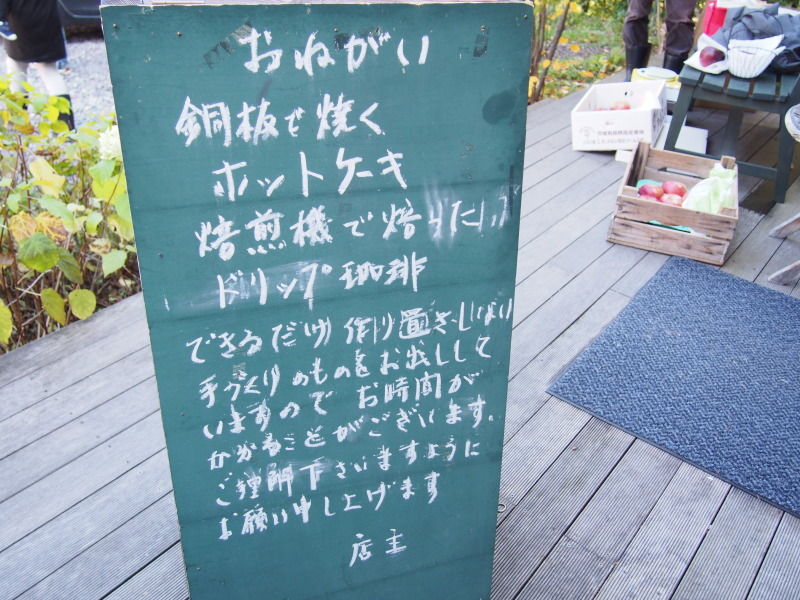 おねがい
銅板で焼く
ホットケーキ
焙煎機で焙
ドリップ珈琲
できるだけ作り置きしない
手づくりのものをお出しして
いますので お時間が
かかることがございます。
ご理解下さいますように
お願い申し上げます
店主